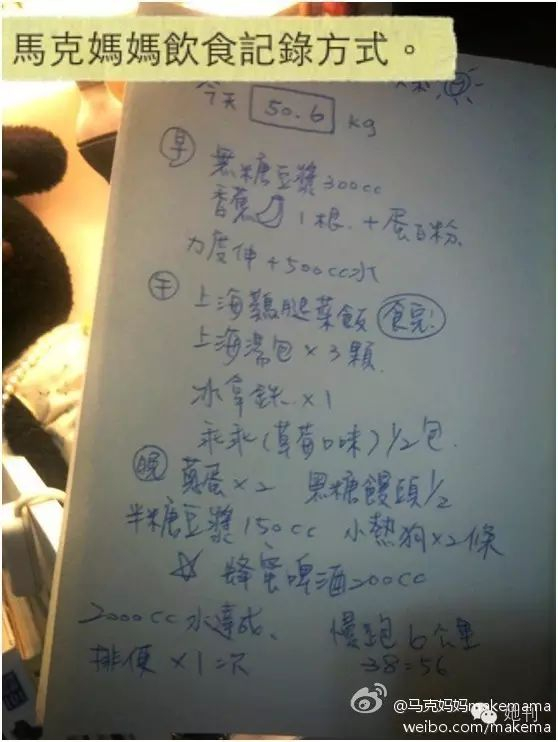 馬克媽媽飲食記錄方式。
今天 50.6 kg
早 無糖豆漿300cc
香蕉 1根 + 蛋白粉
力度伸 + 500cc水
午 上海雞腿菜飯 食完!
上海湯包 × 3顆
冰拿鉄 ×1
乖乖(草莓口味) 1/2包
晚 蒸蛋×2 黑糖饅頭1/2
半糖豆漿150cc 小熱狗×2條
☆ 蜂蜜啤酒200cc
2000cc水達成、 慢跑6公里
排便 ×1次 38=56
@马克妈妈makemama
weibo.com/makema
妲刊